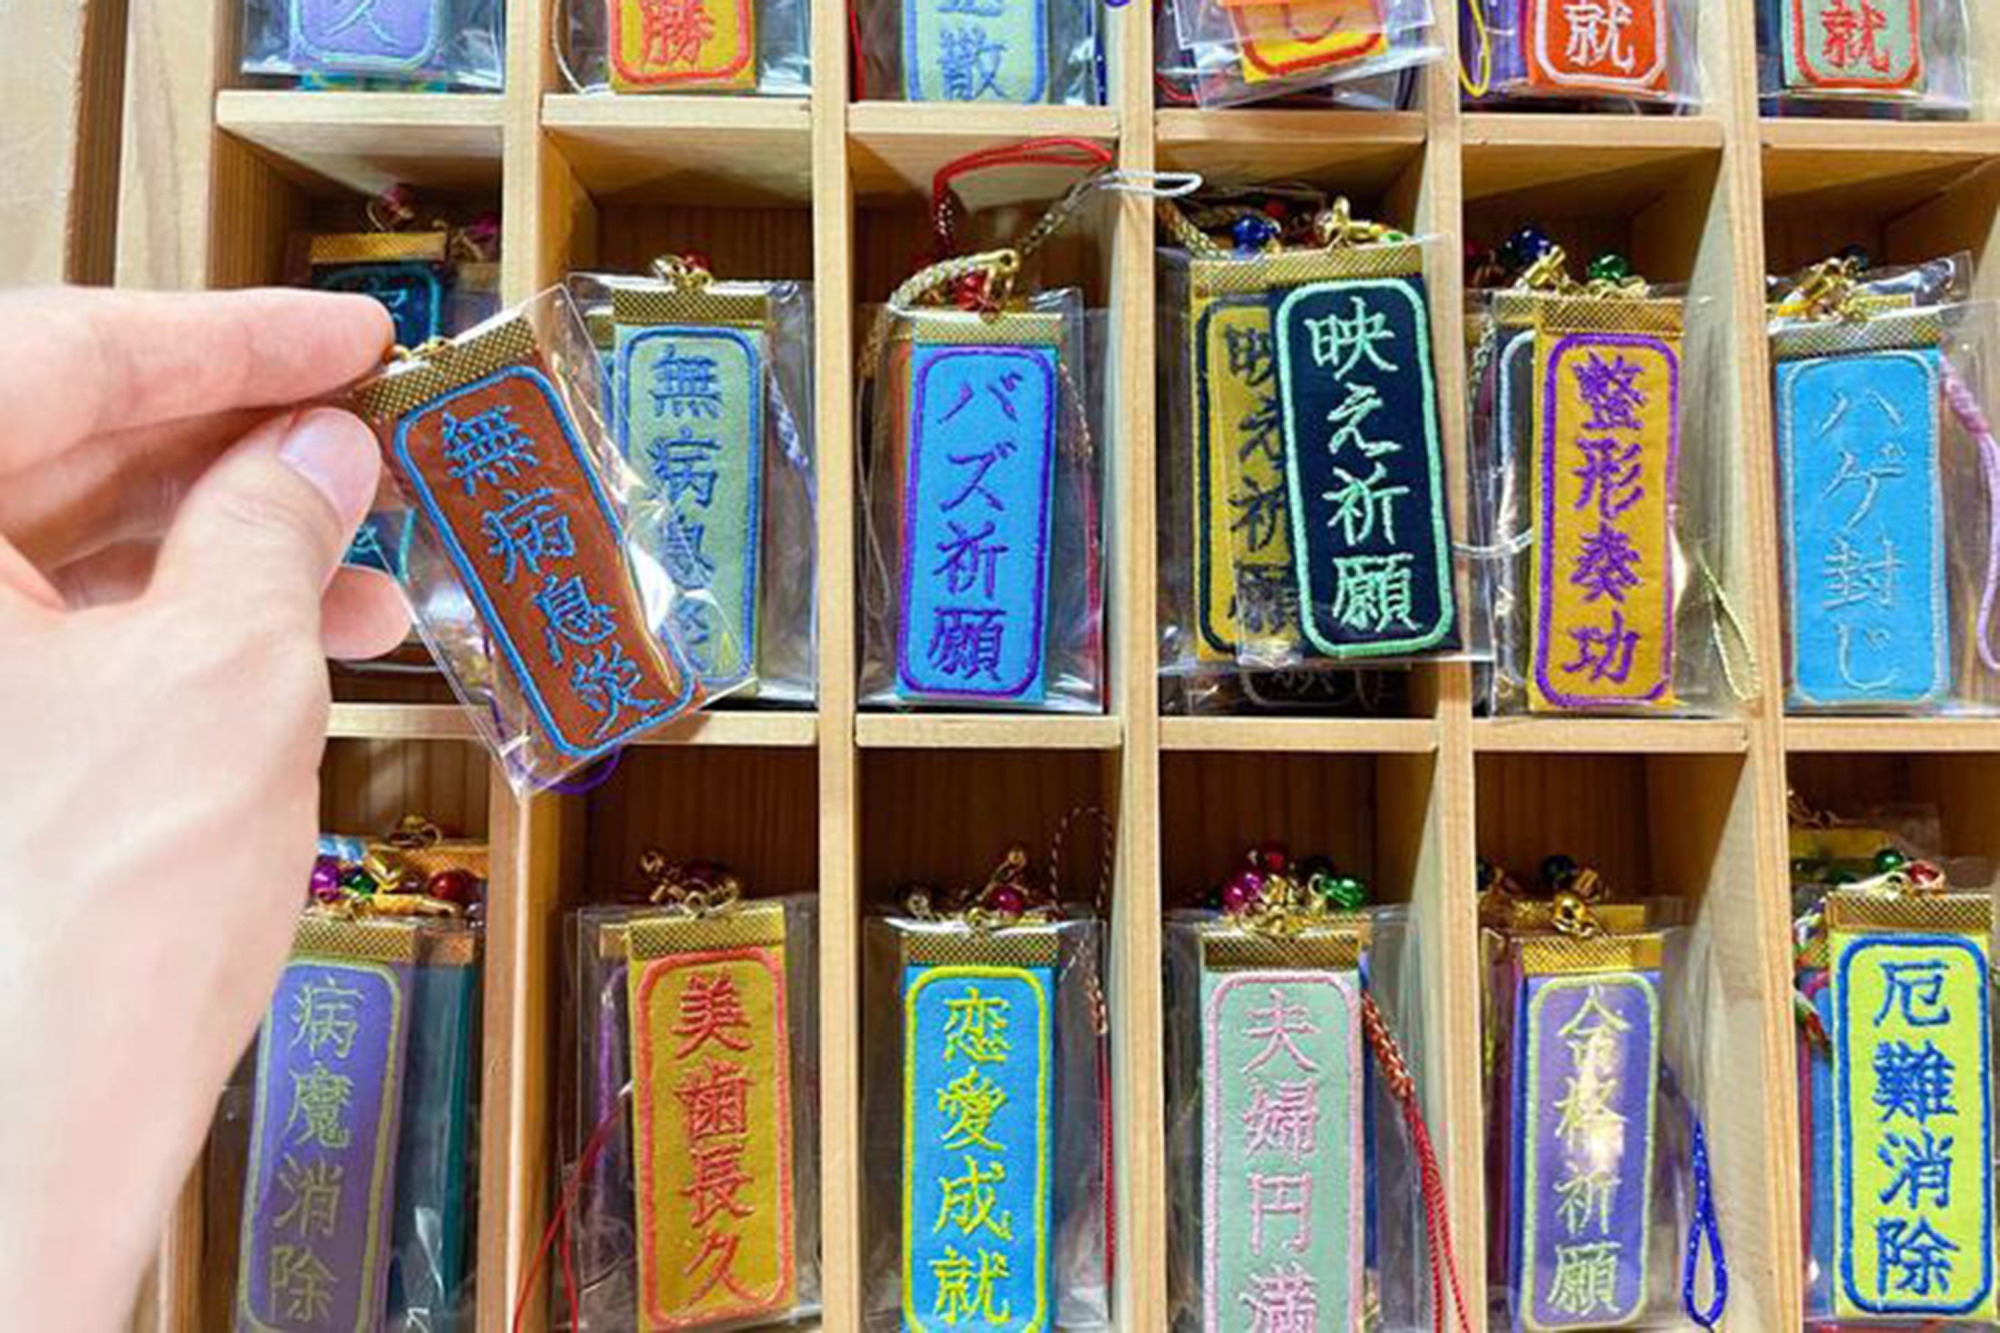 久
勝
散
就
就
無病息災
無病息災
バズ祈願
映え祈願
映え祈願
整形奏功
ハゲ封じ
病魔消除
美歯長久
恋愛成就
夫婦円満
合格祈願
厄難消除